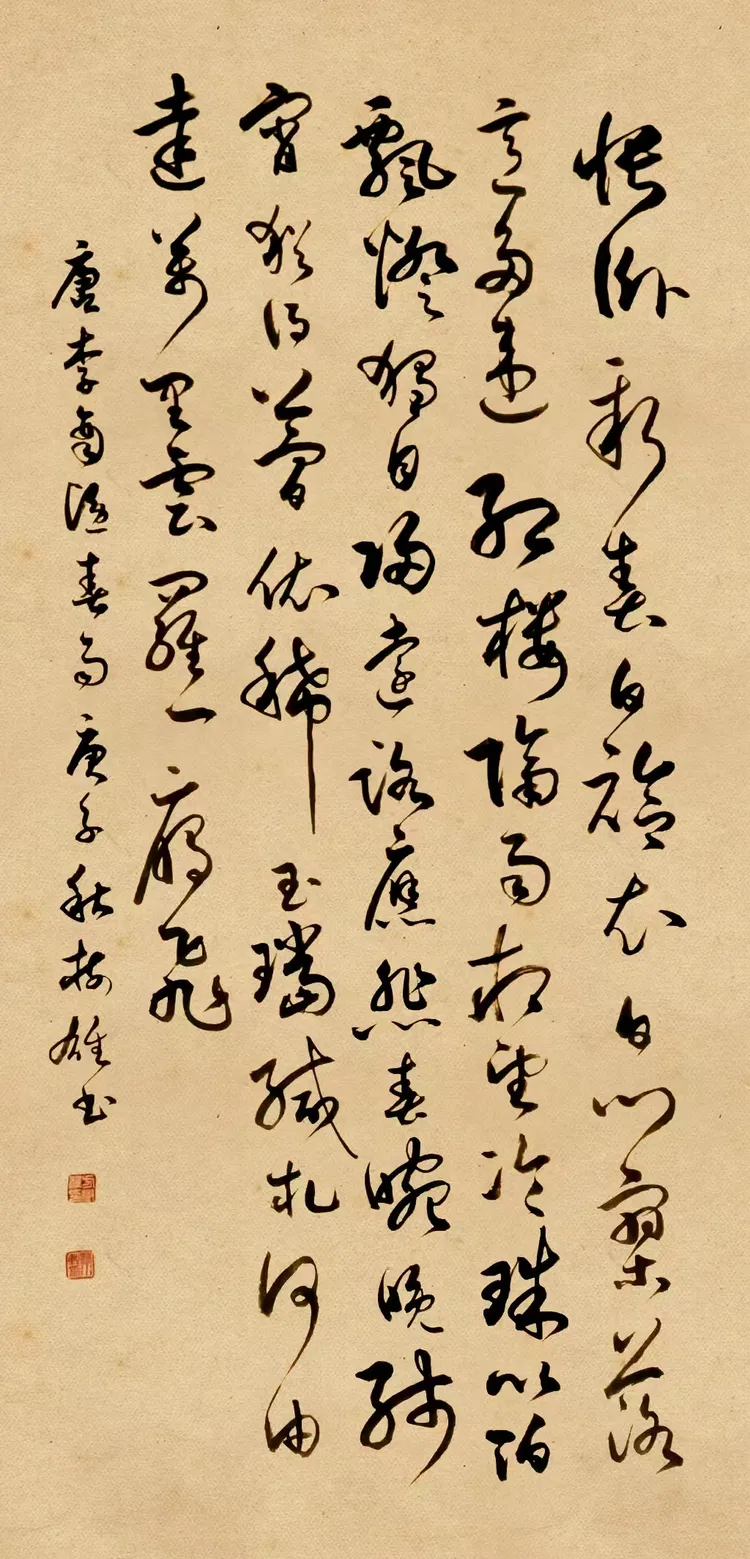 悵卧新春白袷衣白門寥落
意多違紅樓隔雨相望冷珠箔
飄燈獨自歸遠路應悲春晼晚殘
宵猶得夢依稀玉璫緘札何由
達萬里雲羅一雁飛
唐李商隱春雨庚子秋樹雄书